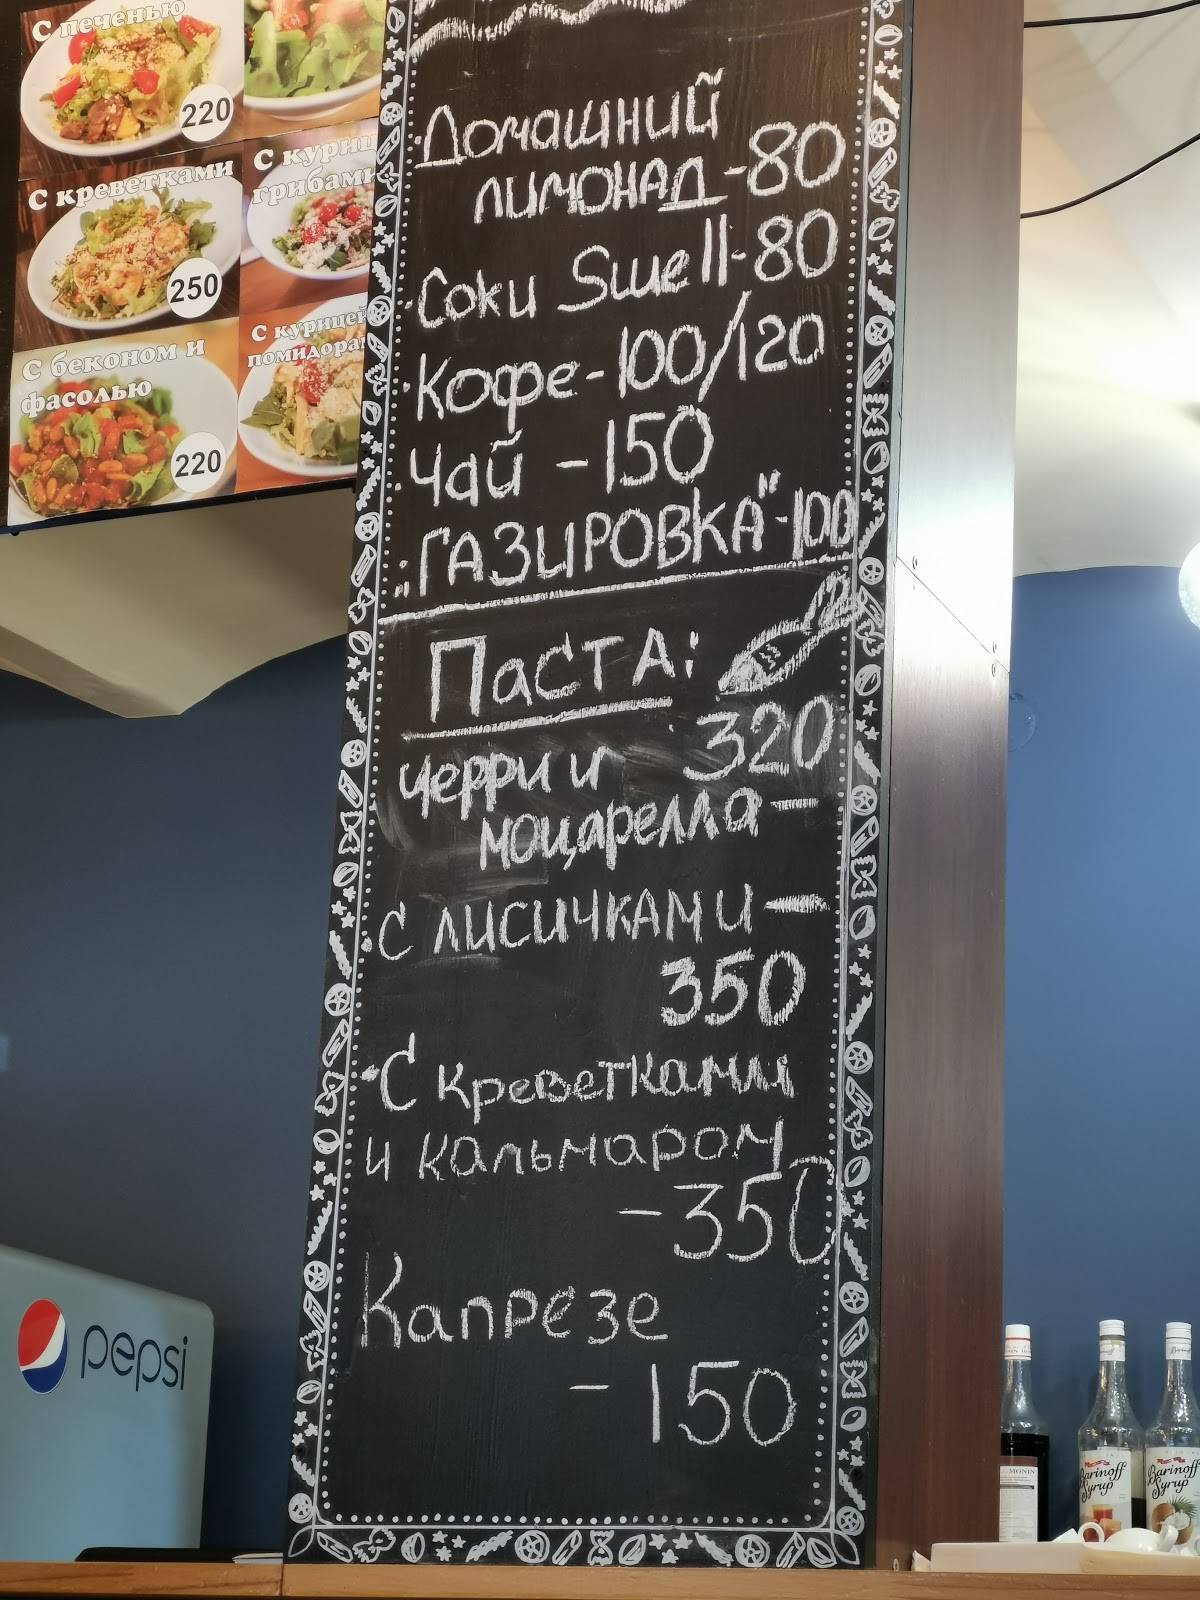 С печенью
220
С креветками
250
С куриц
грибами
С беконом и
фасолью
220
С курицей
помидора
Домашний
лимонад - 80
Соки Swell - 80
Кофе - 100/120
Чай - 150
„ГАЗИРОВКА" - 100
ПАСТА:
Черри и 320
моцарелла -
С лисичками -
350
С креветками
и кальмаром
- 350
Капрезе
- 150
pepsi
MONIN
Barinoff
Syrup
Barinoff
Syrup